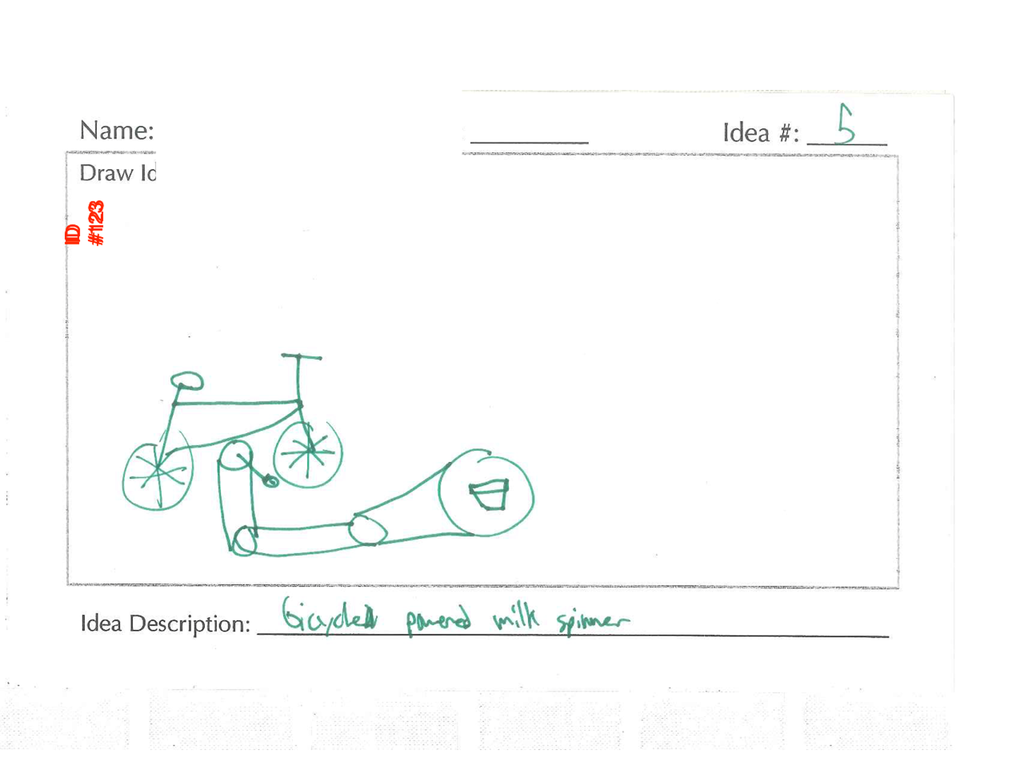 Name:
Idea #: 5
Draw Id
ID
#123
Idea Description: bicycle powered milk spinner